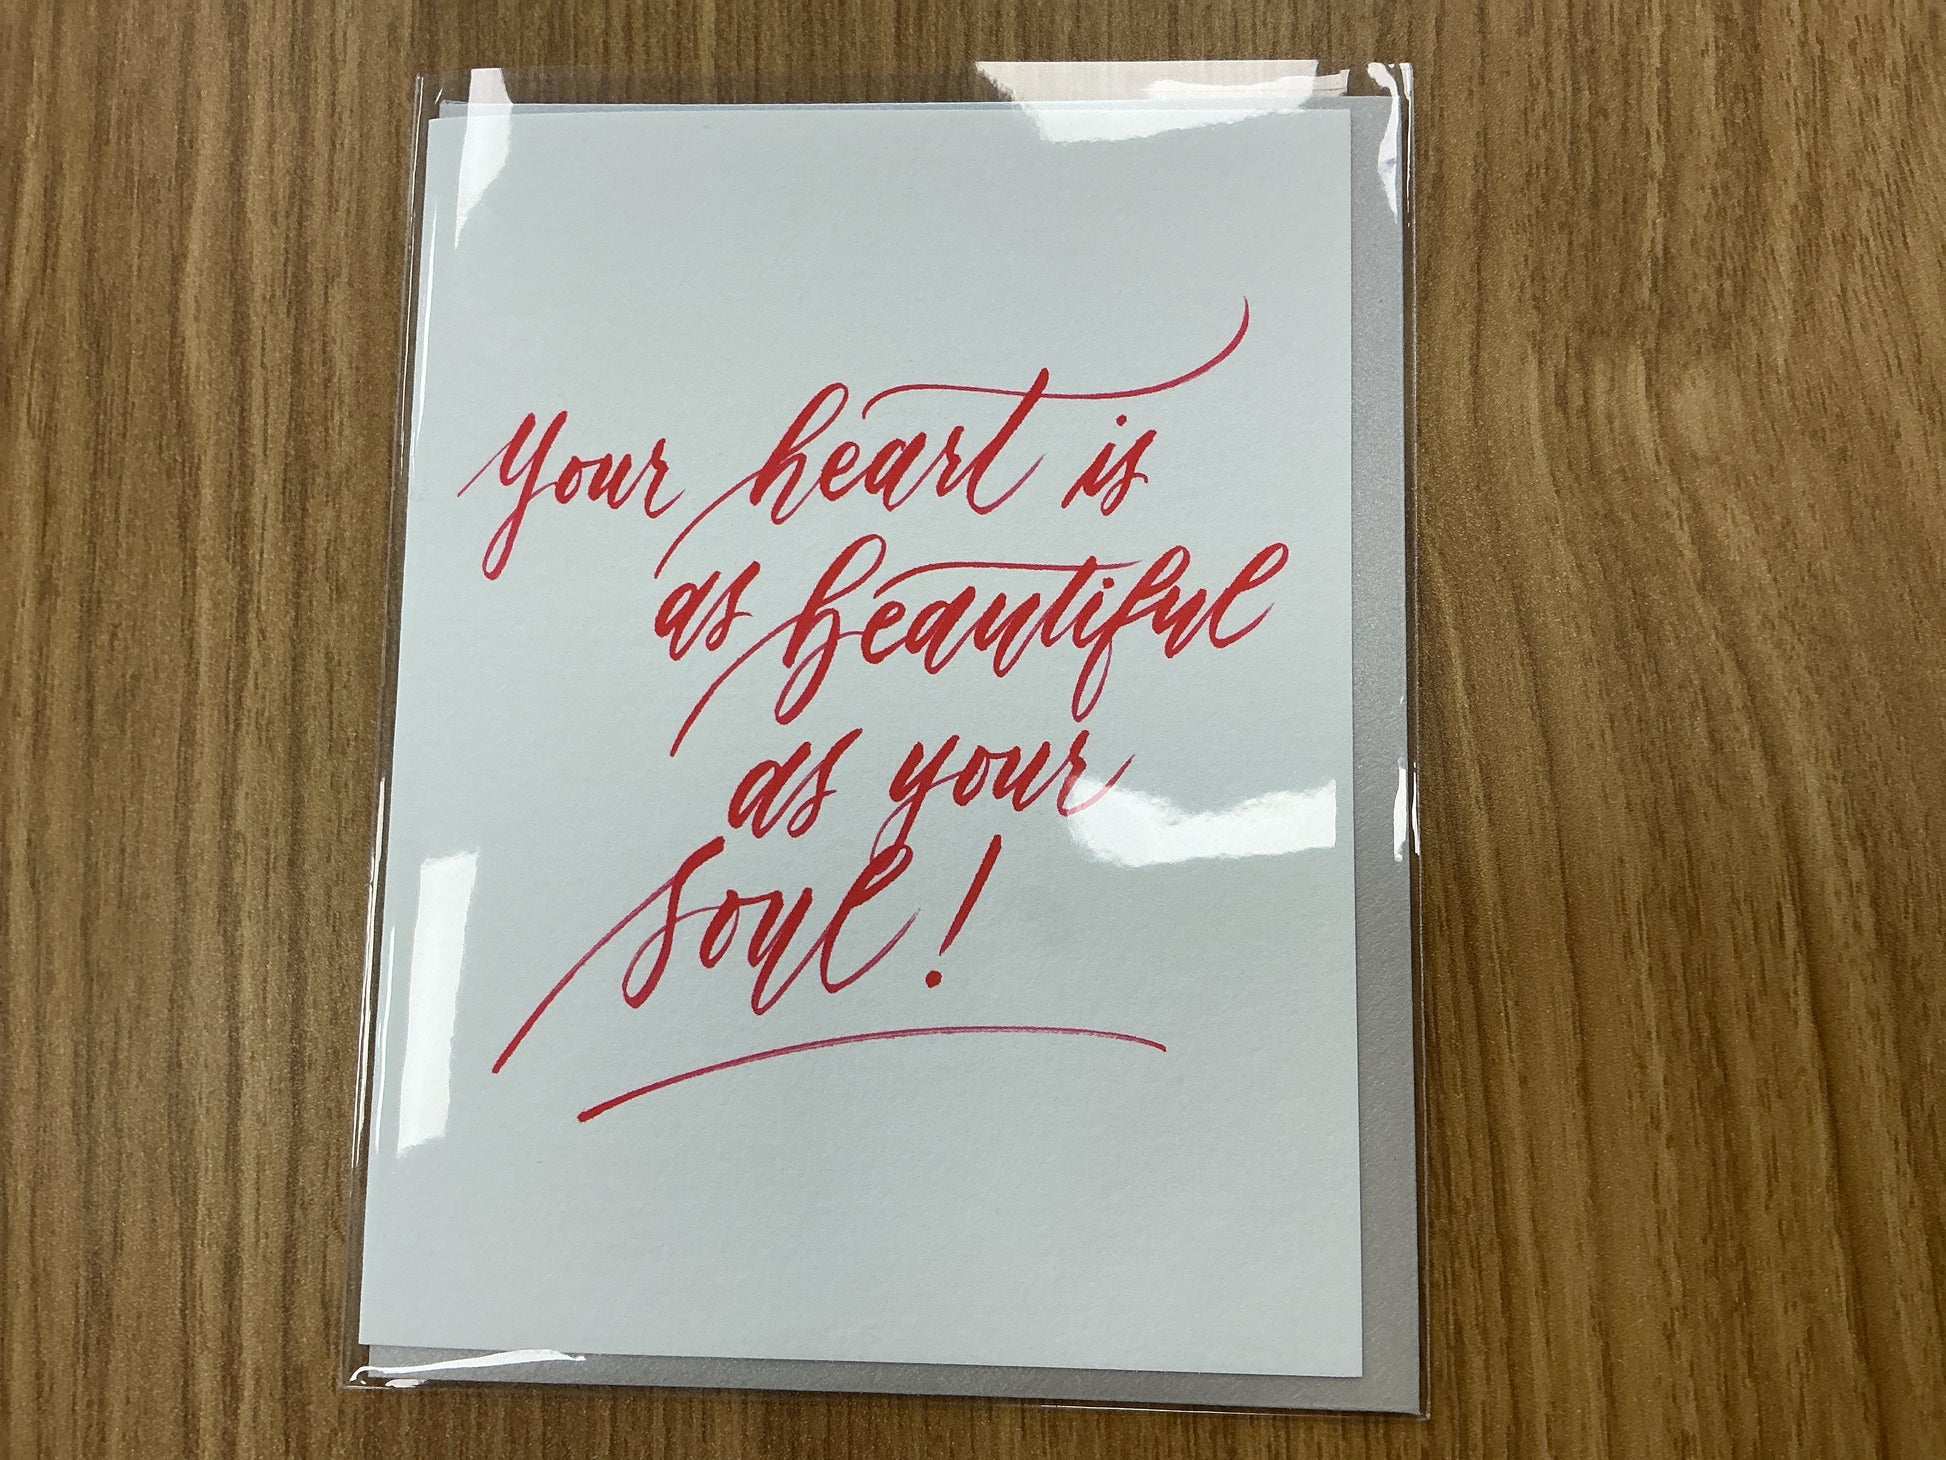 Your heart is
as beautiful
as your
soul!